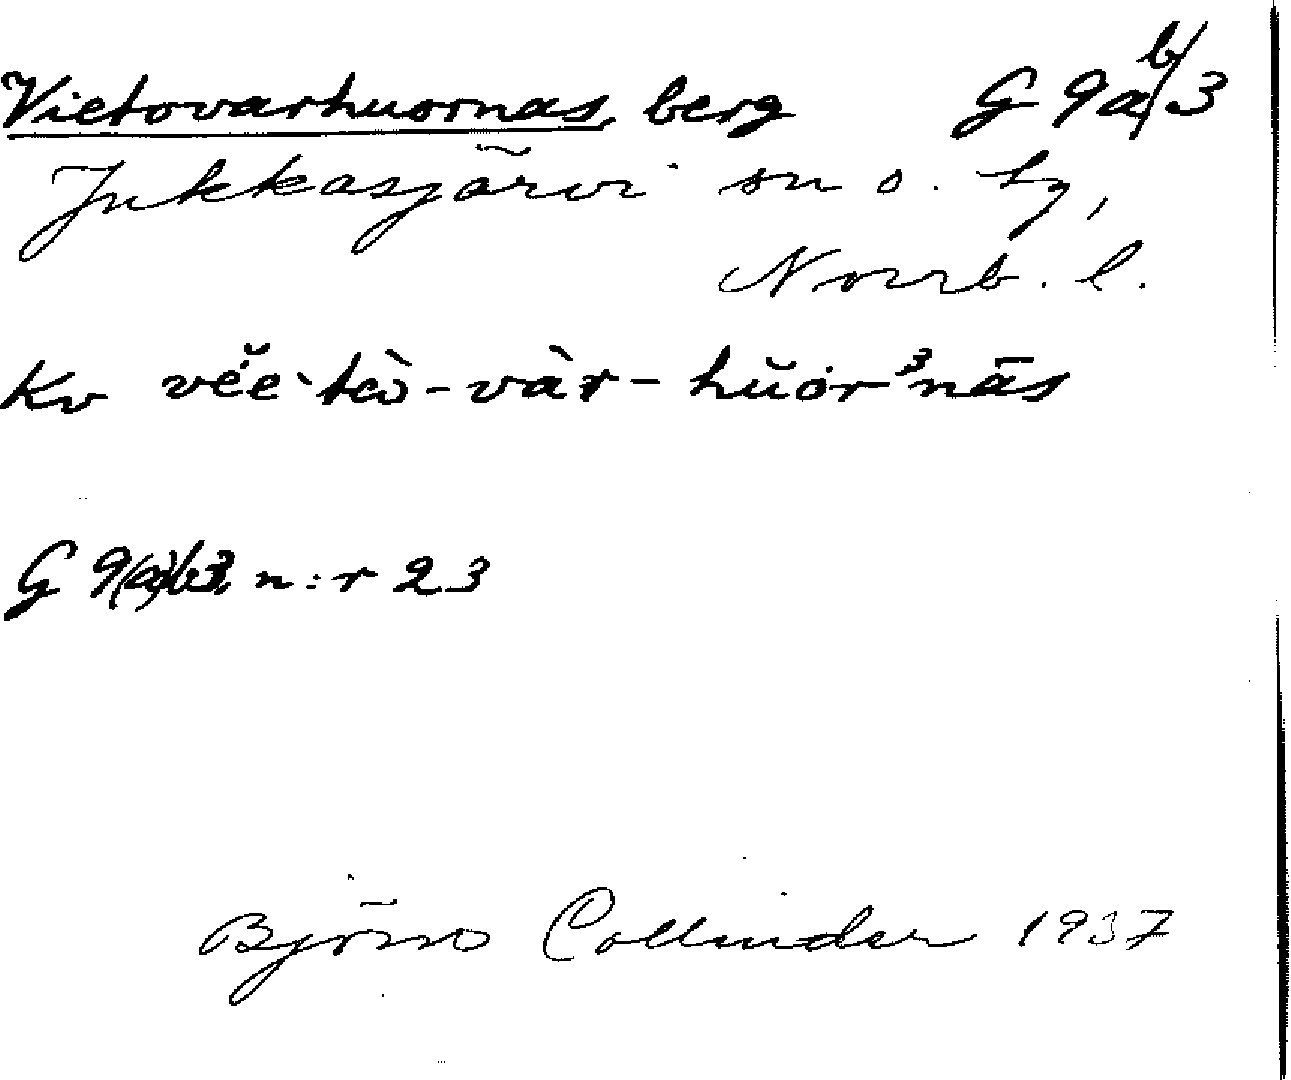 Vietovarhuornas, berg G 9a/b/3
Jukkasjärvi sn o. tg,
Norrb. l.
Kv vĕ́e`teò-vàr-hŭȯr³nās
G 9(a)b3, n:r 23
Björn Collinder 1937